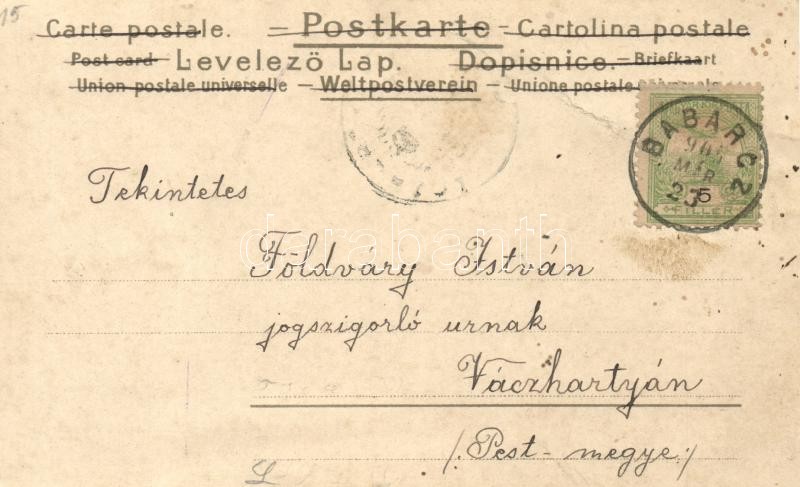 15
Carte postale. – Postkarte – Cartolina postale
Post card – Levelező Lap. Dopisnice. – Briefkaart
Union postale universelle – Weltpostverein – Unione postale universale
BABARCZ
MÁR
23
5
FILLÉR
Tekintetes
Földváry István
jogszigorló urnak
Váczhartyán
/Pest-megye/
darabanth